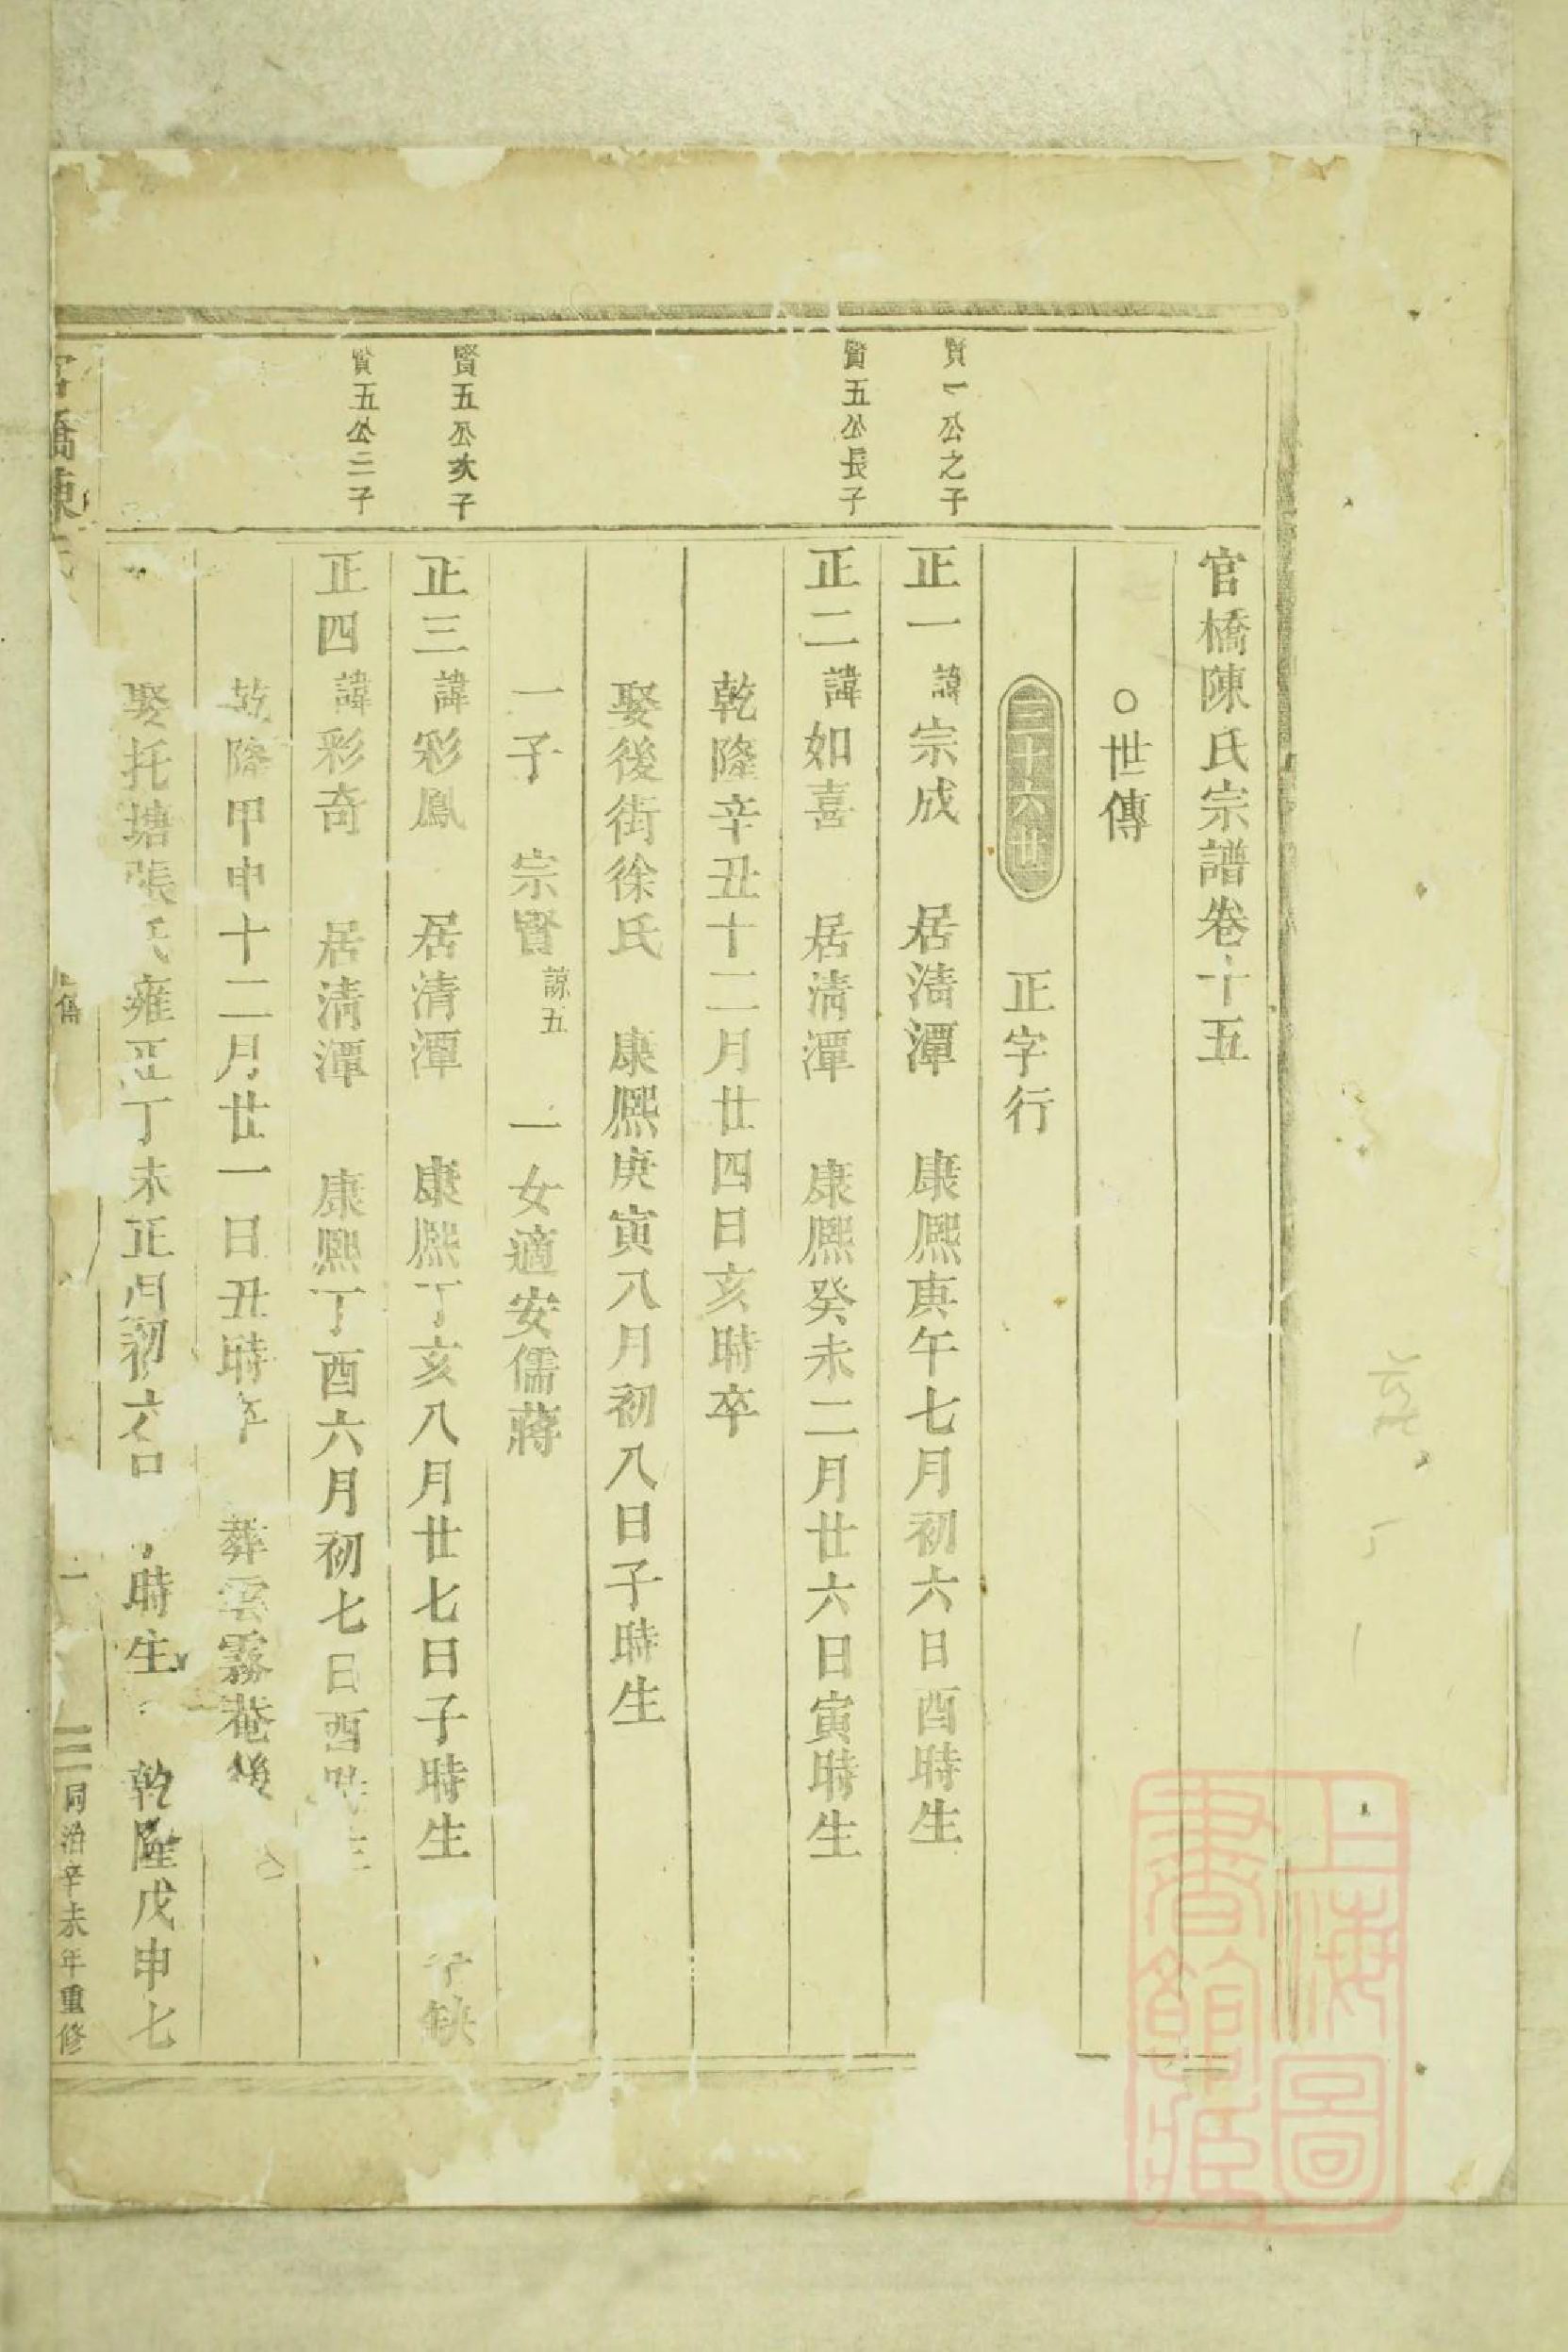 官橋陳氏宗譜卷十五
○世傳
三十六世 正字行
賢一公之子
正一 諱宗成 居清潭 康熙庚午七月初六日酉時生
賢五公長子
正二 諱如喜 居清潭 康熙癸未二月廿六日寅時生
乾隆辛丑十二月廿四日亥時卒
娶後街徐氏 康熙庚寅八月初八日子時生
一子 宗賢諒五 一女適安儒蔣
賢五公次子
正三 諱彩鳳 居清潭 康熙丁亥八月廿七日子時生 子缺
賢五公三子
正四 諱彩奇 居清潭 康熙丁酉六月初七日酉時生
乾隆甲申十二月廿一日丑時卒 葬雲霧菴後
娶托塘張氏雍正丁未正月初六日 時生 乾隆戊申七
橋陳
一
同治辛未年重修
上海圖書館藏